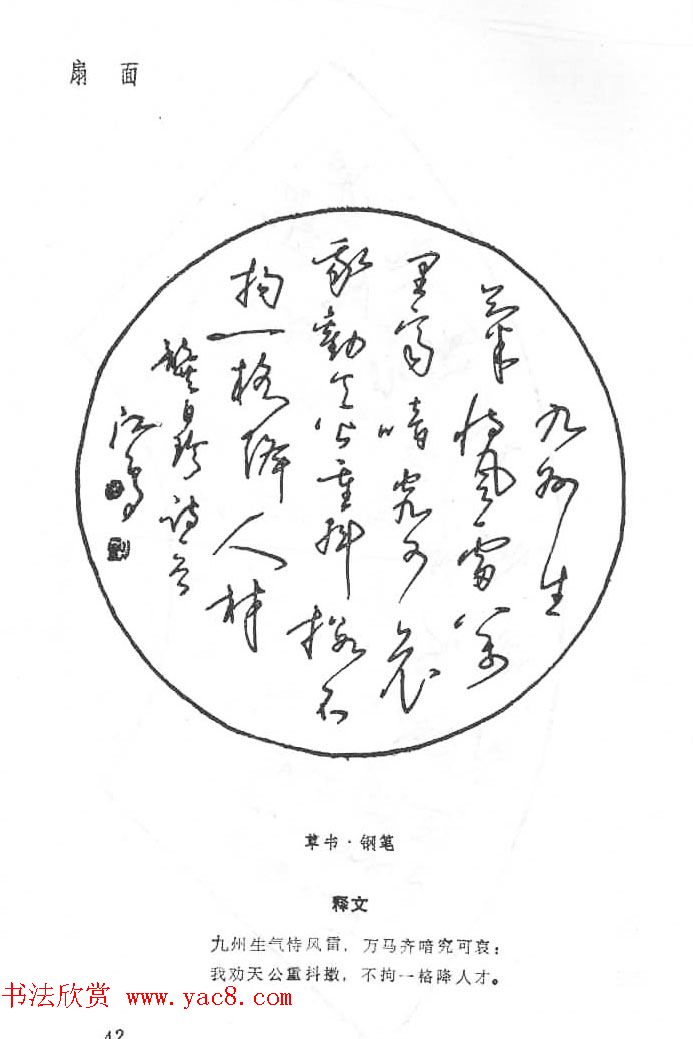 扇面
九州生
氣恃风雷万
里齊喑究可哀
我勸天公重抖擞不
拘一格降人材
龔自珍诗
江
草书·钢笔
释文
九州生气恃风雷，万马齐喑究可哀：
我劝天公重抖擞，不拘一格降人才。
书法欣赏 www.yac8.com
42